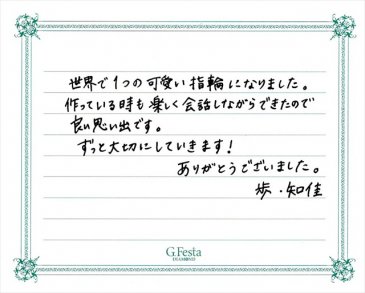 世界で1つの可愛い指輪になりました。
作っている時も楽しく会話しながらできたので
良い思い出です。
ずっと大切にしていきます！
ありがとうございました。
歩・知佳
G.Festa
DIAMOND